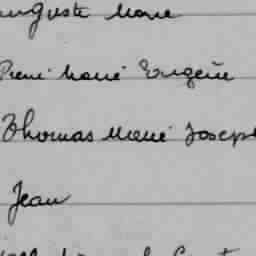 Auguste Marie
Pierre Marie Eugène
Thomas Marie Joseph
Jean